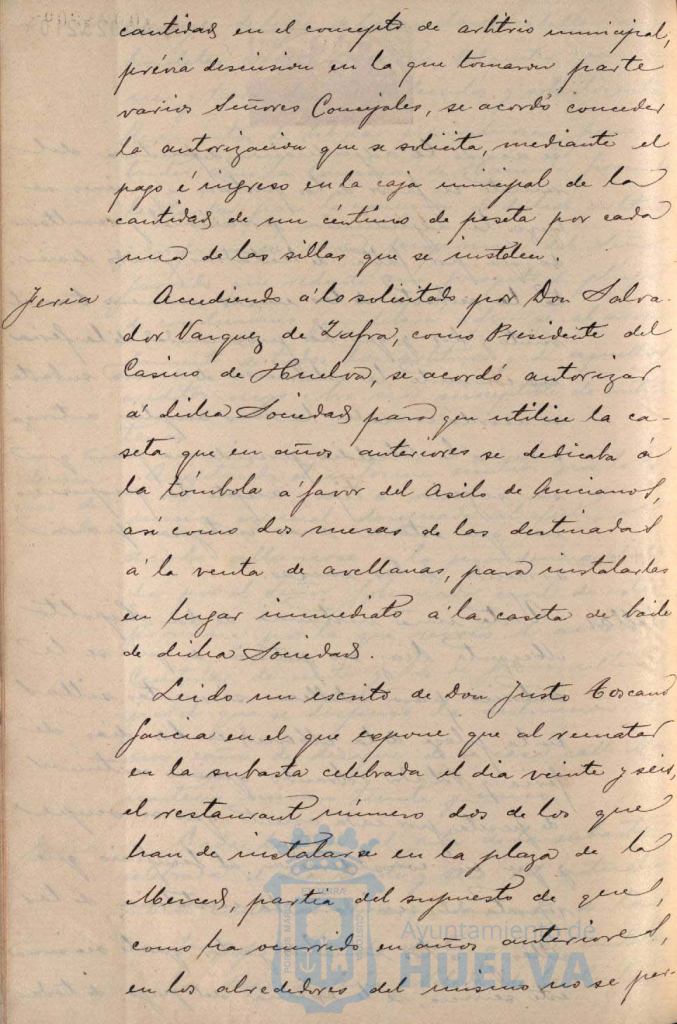 cantidad en el concepto de arbitrio municipal,
prévia discusion en la que tomaron parte
varios Señores Concejales, se acordó conceder
la autorizacion que se solicita, mediante el
pago é ingreso en la caja municipal de la
cantidad de un céntimo de peseta por cada
una de las sillas que se instalen.
Feria
Accediendo á lo solicitado por Don Salva-
dor Vazquez de Zafra, como Presidente del
Casino de Huelva, se acordó autorizar
á dicha Sociedad para que utilice la ca-
seta que en años anteriores se dedicaba á
la tómbola á favor del Asilo de Ancianos,
así como dos mesas de las destinadas
á la venta de avellanas, para instalarlas
en lugar inmediato á la caseta de baile
de dicha Sociedad.
Leido un escrito de Don Justo Toscano
Garcia en el que expone que al rematar
en la subasta celebrada el dia veinte y seis,
el restaurant número dos de los que
han de instalarse en la plaza de la
Merced, partia del supuesto de que,
como ha ocurrido en años anteriores,
en los alrededores del mismo no se per-
Ayuntamiento de
HUELVA